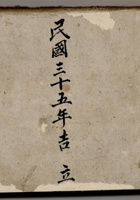 民國三十五年吉立